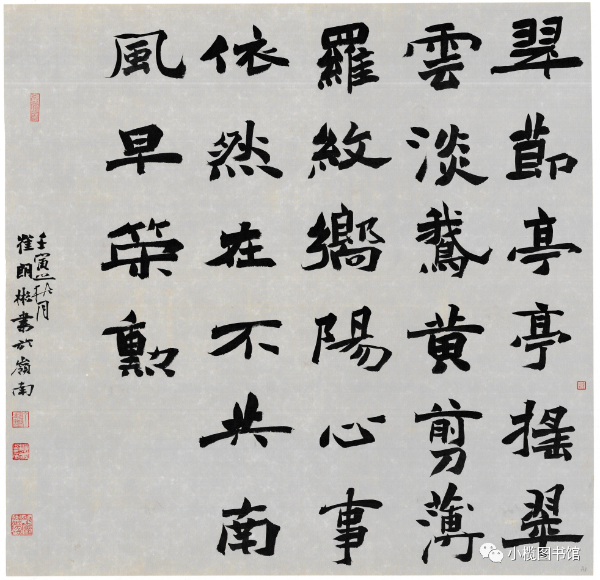 翠節亭亭搖翠
雲淡鵝黃剪薄
羅紋嚮陽心事
依然在不共南
風早策勳
壬寅秋月
崔朗彬書於嶺南
小榄图书馆